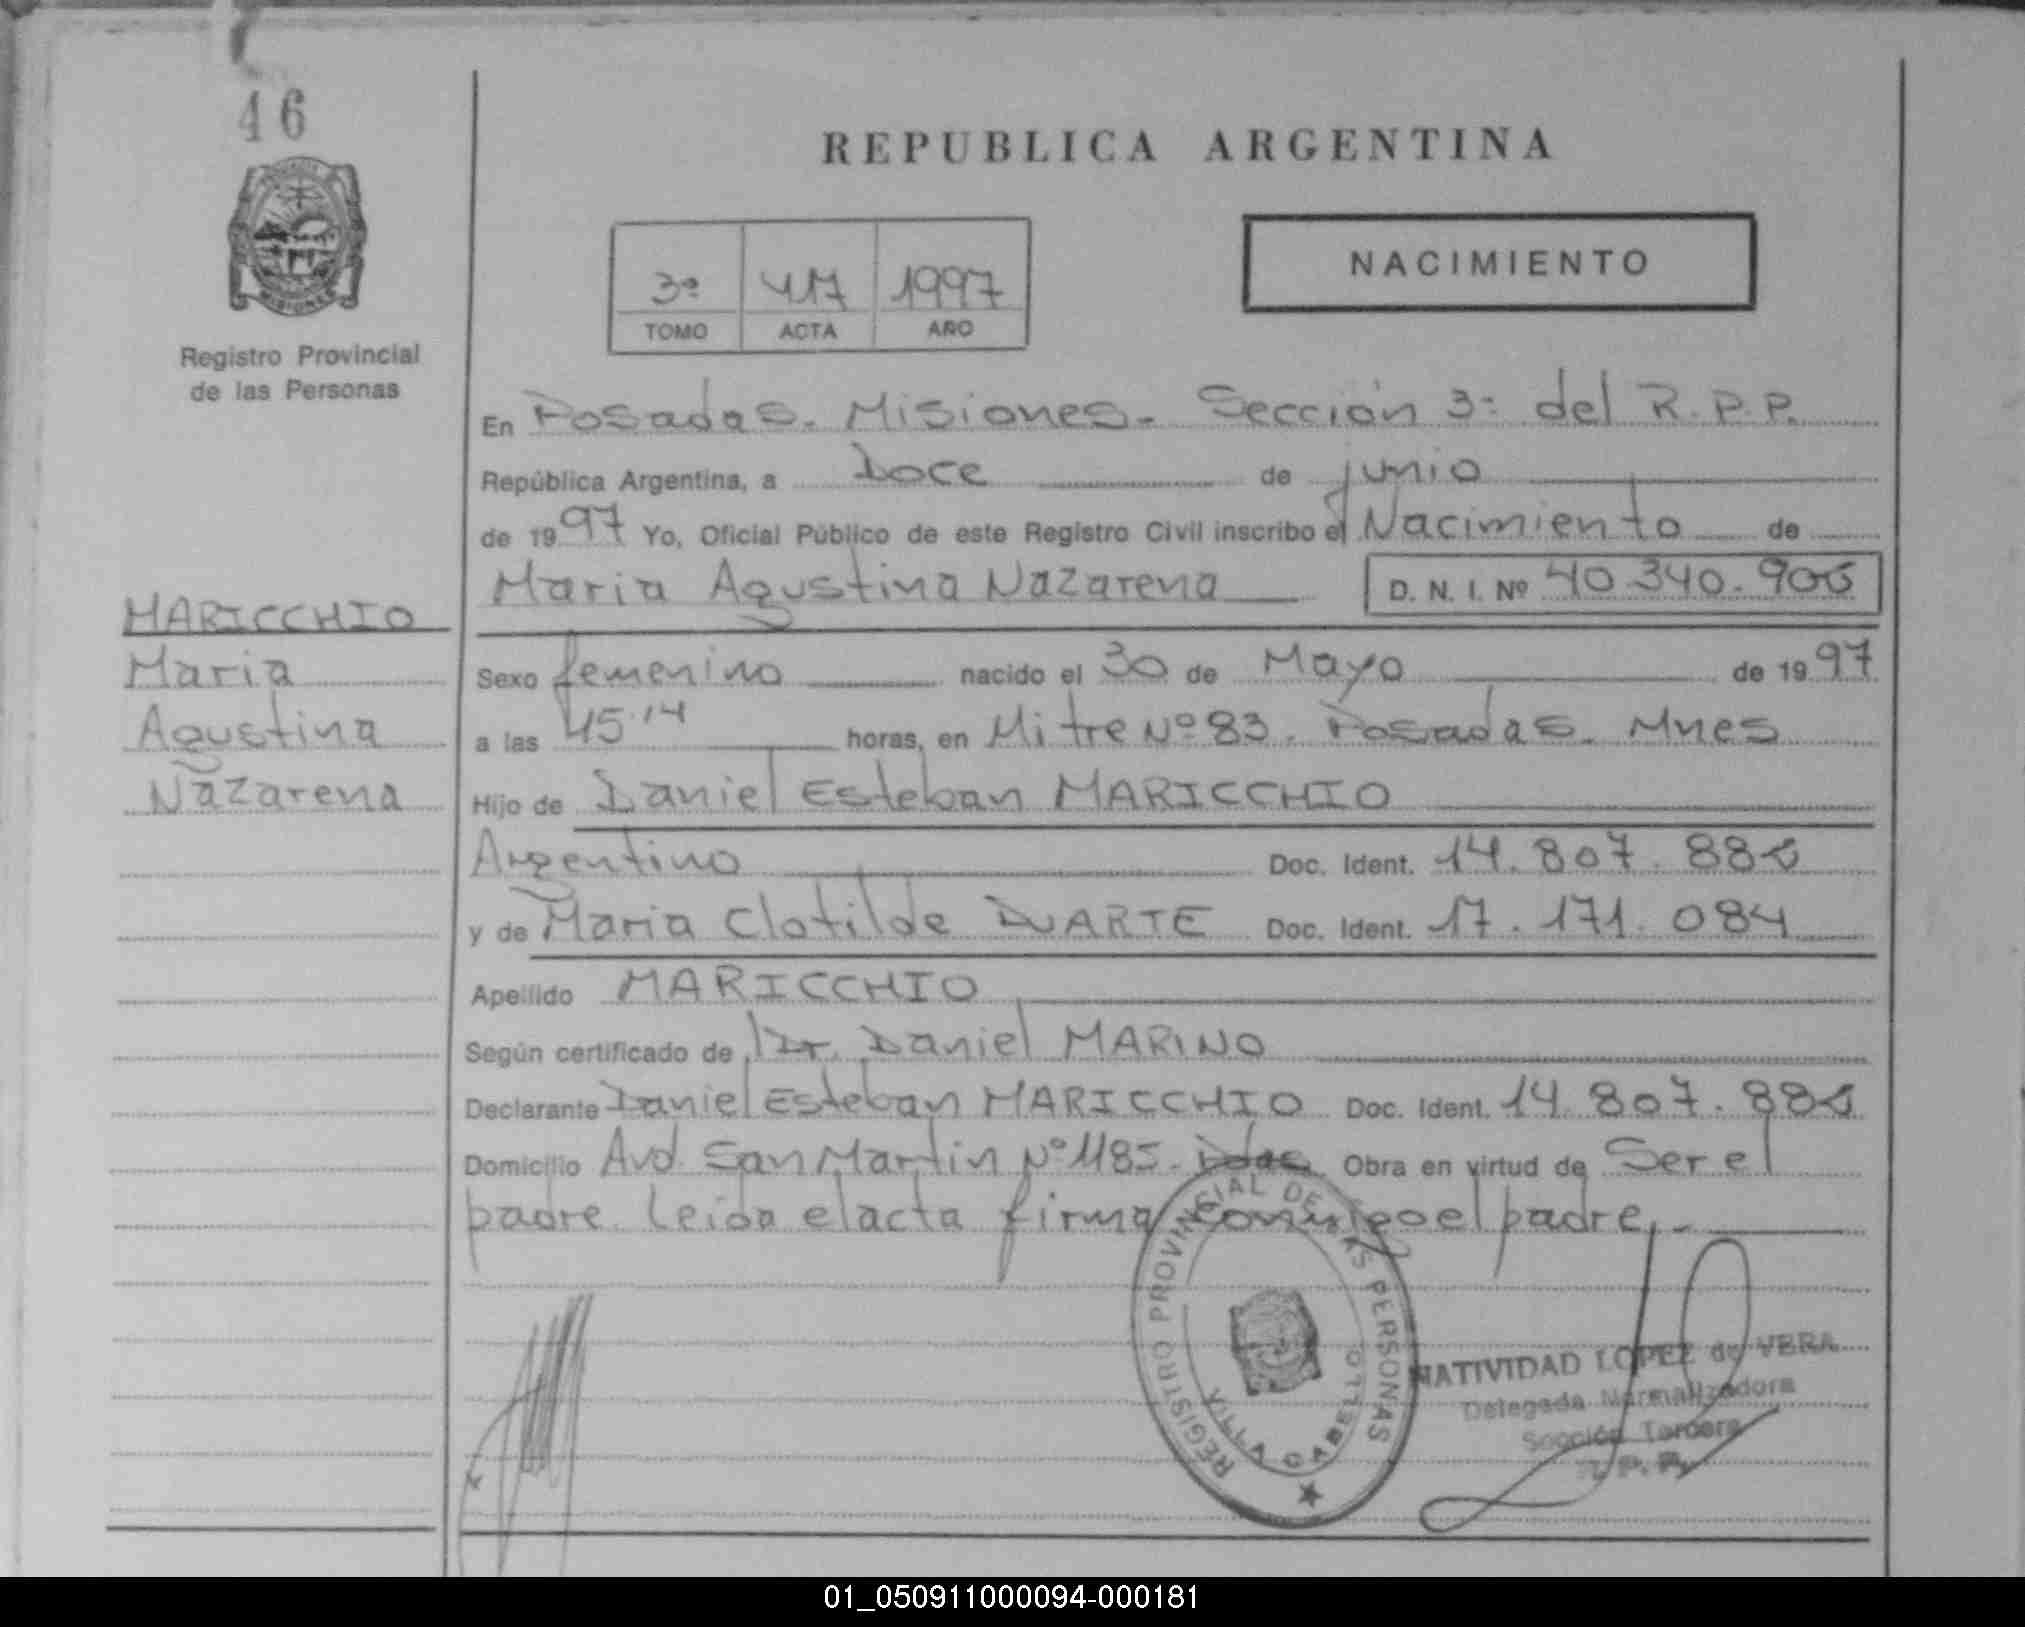 46
REPUBLICA ARGENTINA
NACIMIENTO
3º 417 1997
TOMO ACTA AÑO
Registro Provincial
de las Personas
En Posadas. Misiones. Sección 3ª del R.P.P.
República Argentina, a Doce de junio
de 1997 Yo, Oficial Público de este Registro Civil inscribo el Nacimiento de
Maria Agustina Nazarena D. N. I. Nº 40.340.906
MARICCHIO
Maria
Agustina
Nazarena
Sexo femenino nacido el 30 de Mayo de 1997
a las 15.14 horas, en Mitre Nº 83. Posadas. Mnes
Hijo de Daniel Esteban MARICCHIO
Argentino Doc. Ident. 14.807.886
y de Maria Clotilde DUARTE Doc. Ident. 17.171.084
Apellido MARICCHIO
Según certificado de Dr. Daniel MARINO
Declarante Daniel Esteban MARICCHIO Doc. Ident. 14.807.886
Domicilio Avd. San Martin Nº 1185. Pdas Obra en virtud de Ser el
padre. Leida el acta firma conmigo el padre.-
REGISTRO PROVINCIAL DE LAS PERSONAS
VILLA CABELLO
NATIVIDAD LOPEZ de VERA
Delegada Normalizadora
Sección Tercera
R. P. P.
01_050911000094-000181